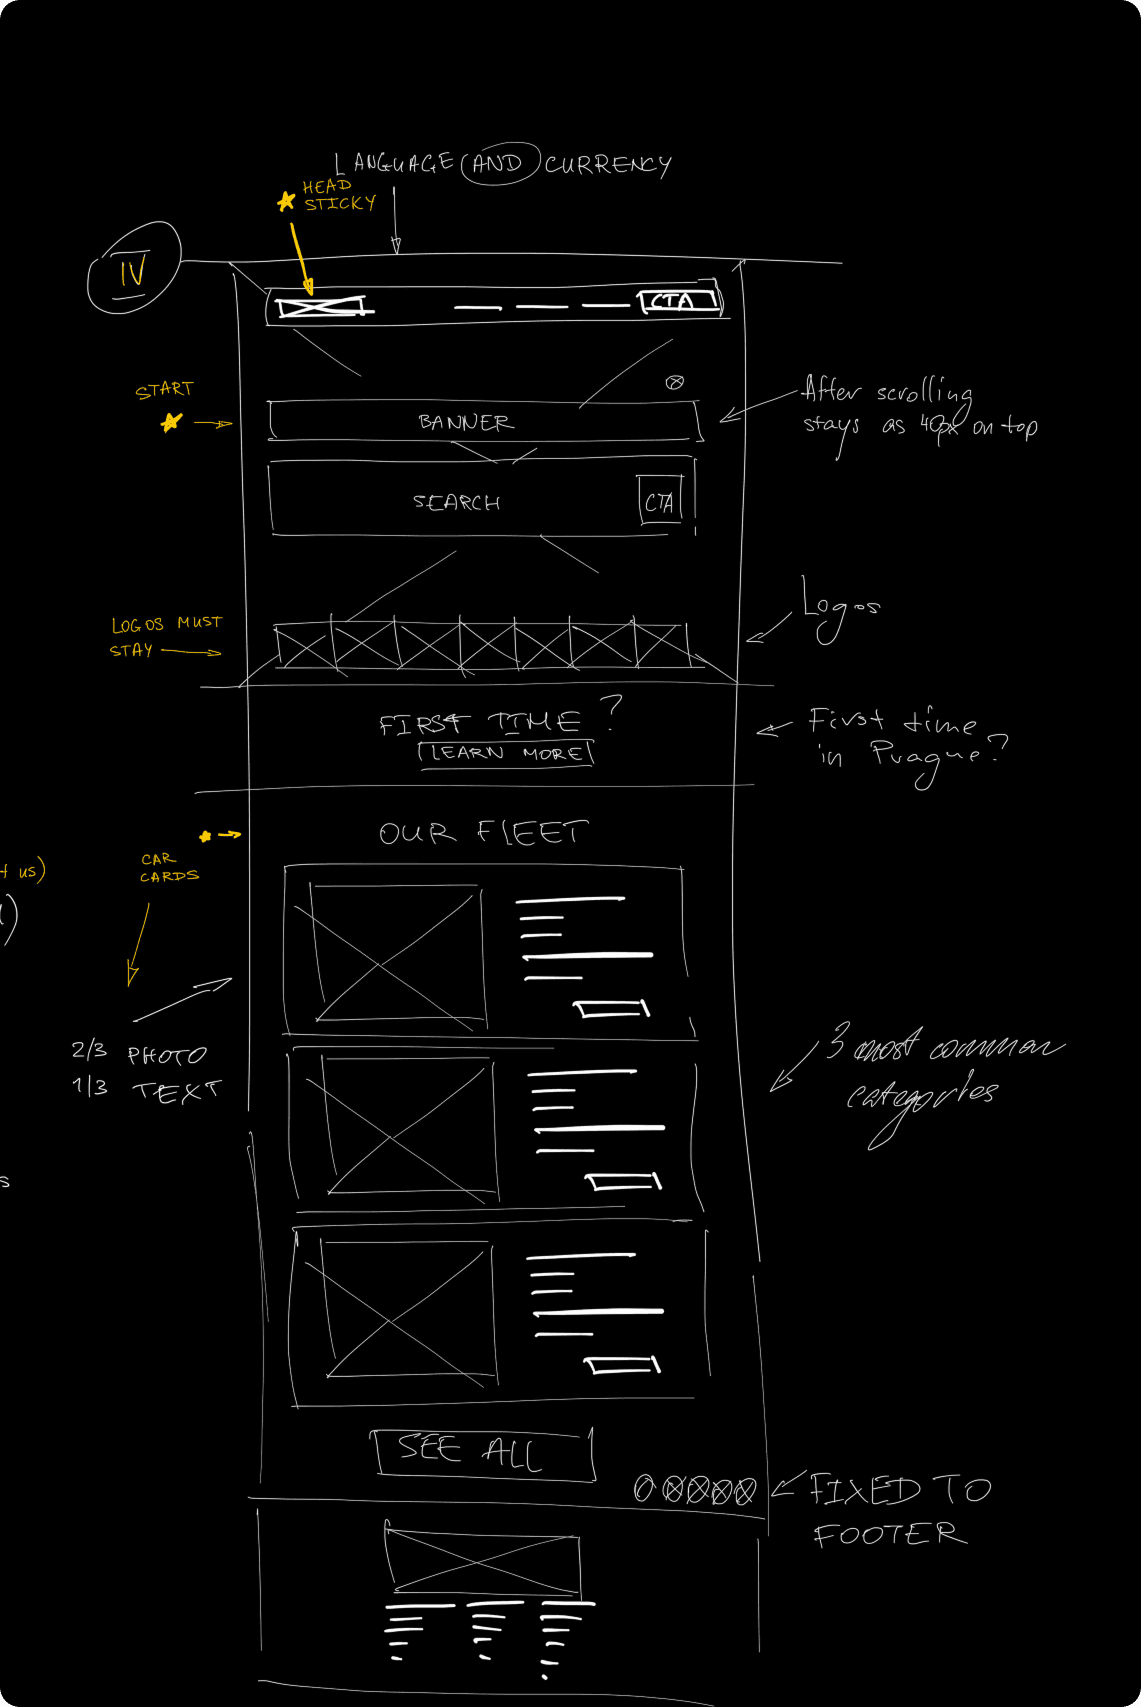 LANGUAGE AND CURRENCY
HEAD
STICKY
IV
CTA
START
BANNER
After scrolling
stays as 40px on top
SEARCH
CTA
LOGOS MUST
STAY
Logos
FIRST TIME ?
LEARN MORE
First time
in Prague?
OUR FLEET
CAR
CARDS
us)
2/3 PHOTO
1/3 TEXT
3 most common
categories
s
SEE ALL
FIXED TO
FOOTER